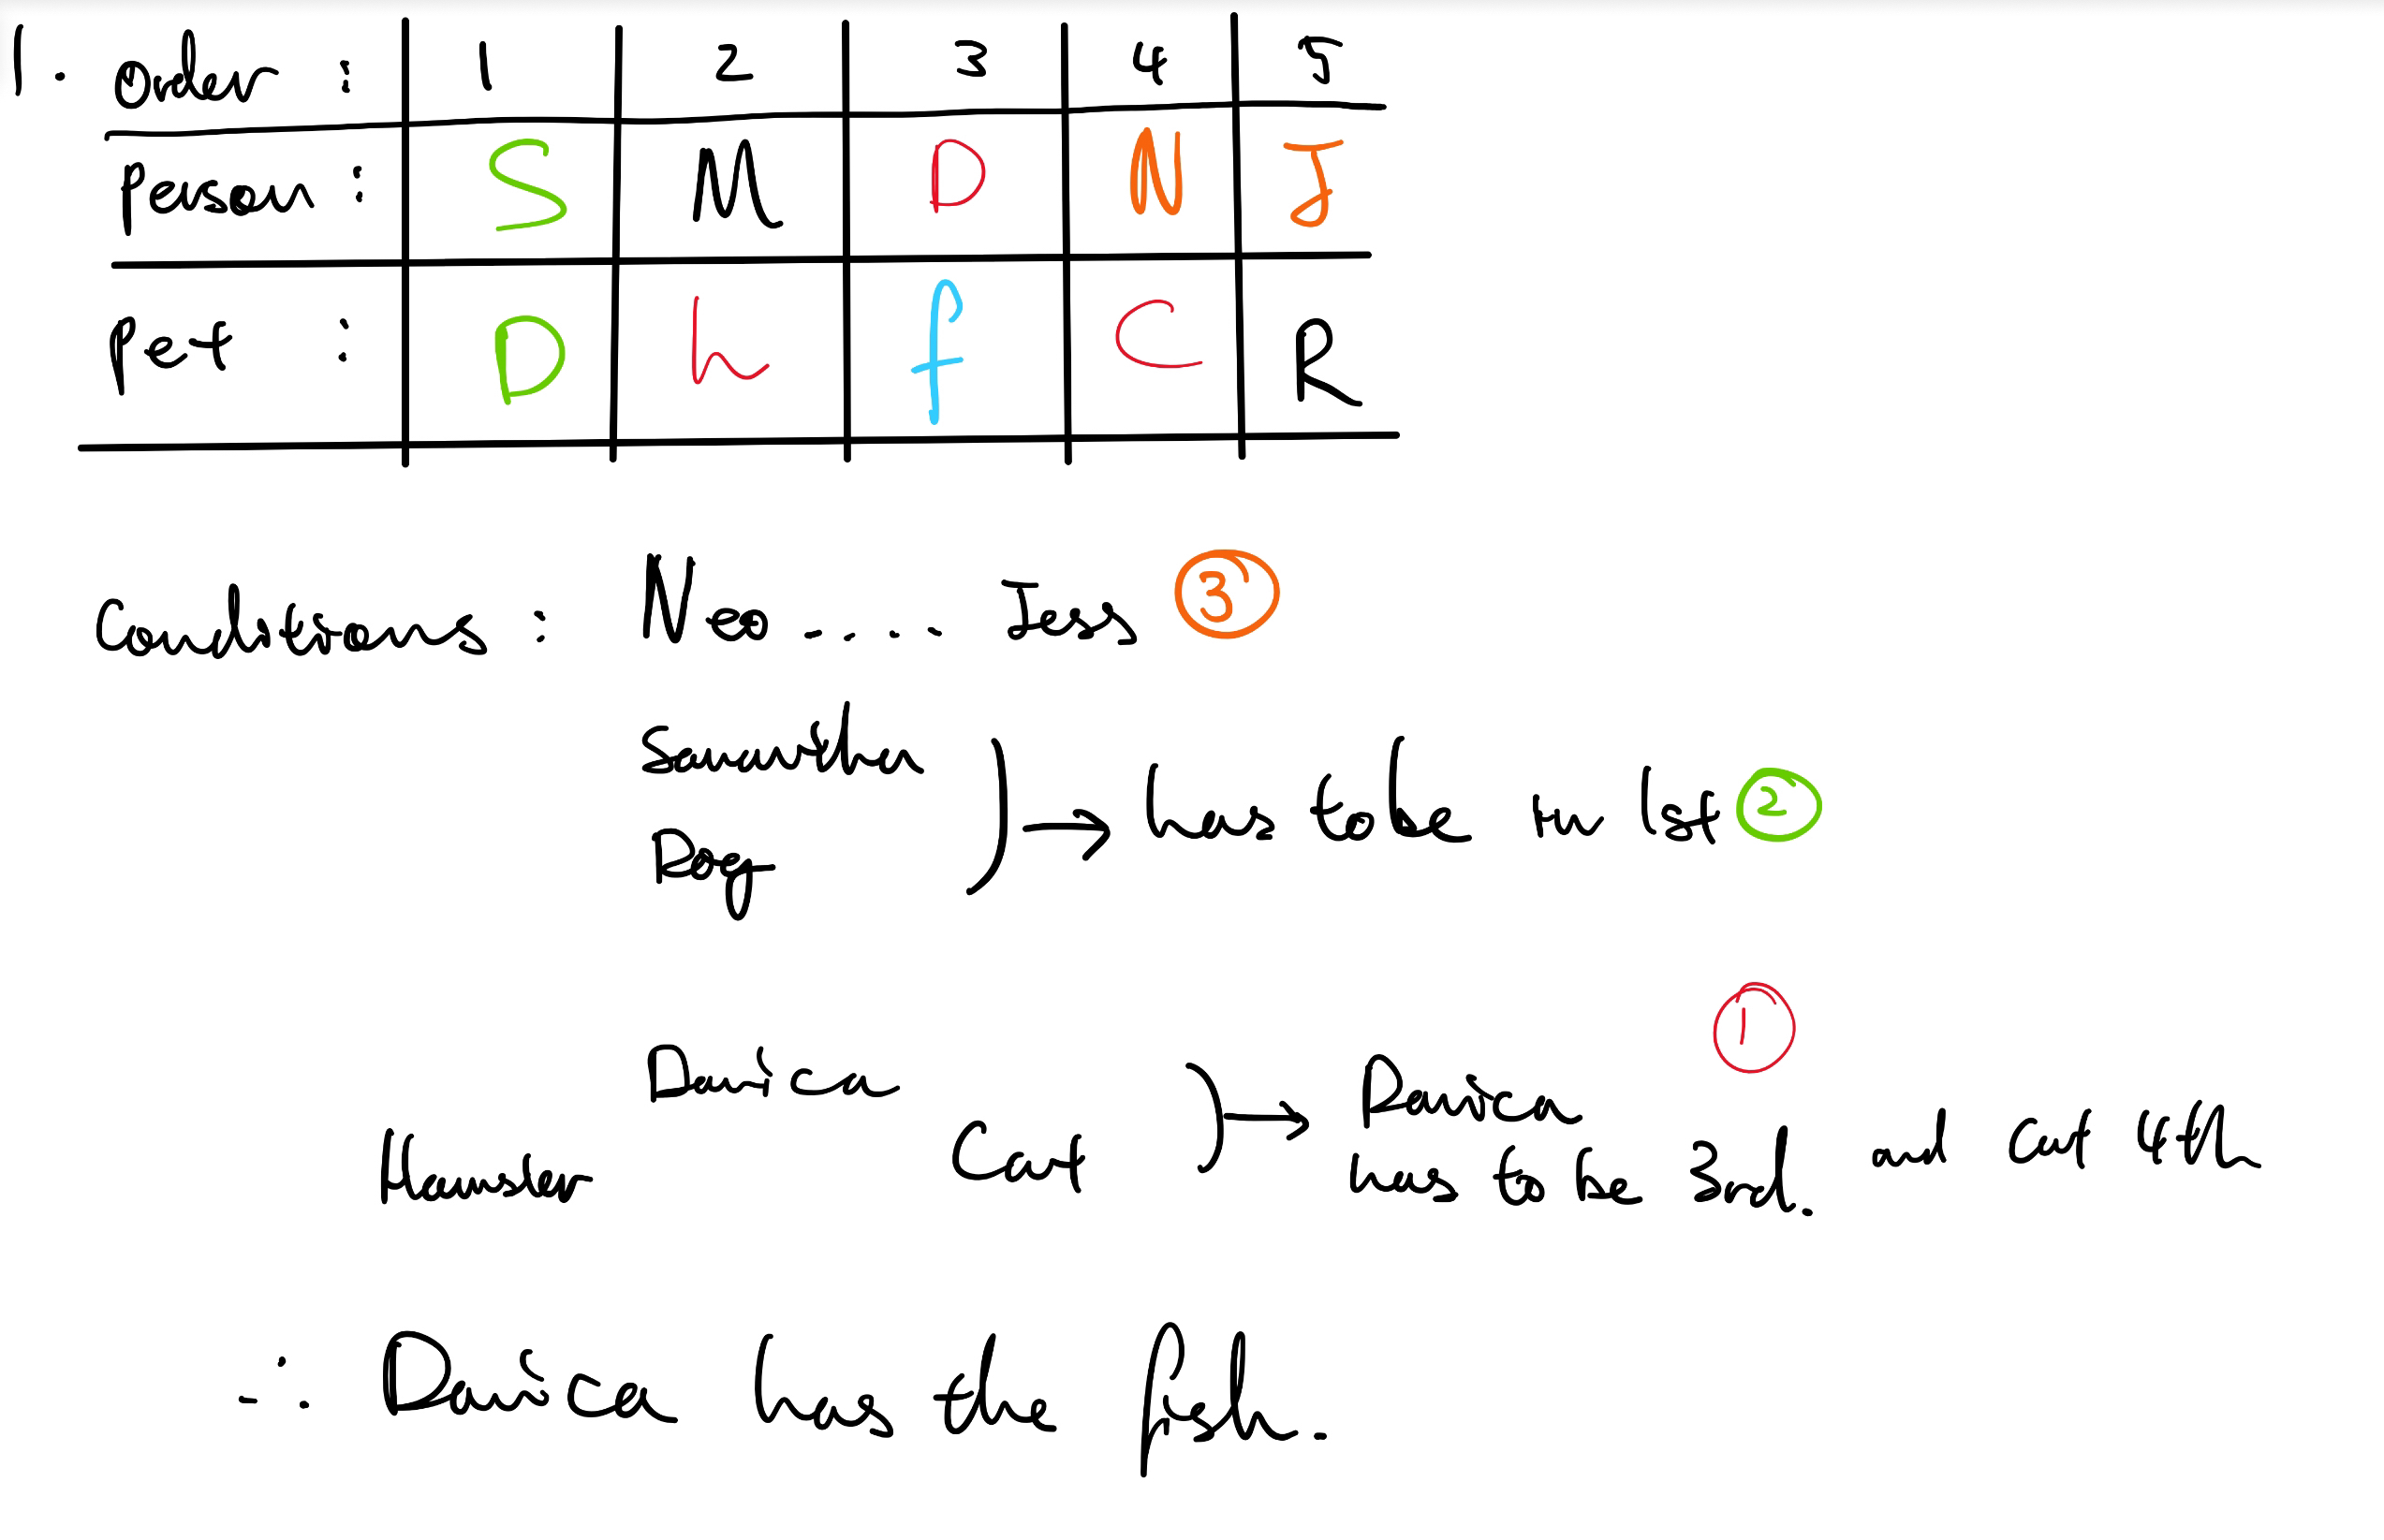 1. Order : 1 2 3 4 5
Person : S M D N J
Pet : D h f C R
Conditions : Neo .... Jess ③
Samantha
Dog → has to be in 1st ②
①
Danica → Danica
Hamster Cat has to be 3rd. and cat 4th
∴ Danica has the fish.